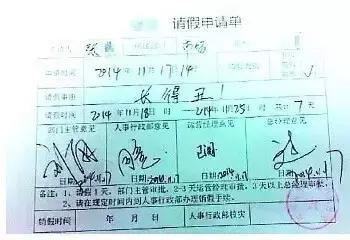 请假申请单
申请人 张 市场
申请时间 2014年11月17日14时
请假事由 长得丑!
请假时间 2014年11月18日 2014年11月25日 共计 7 天
部门主管意见 人事行政部意见 运营经理意见 总经理意见
日期 2014.11.17 日期 日期 2014.11.17 日期 2014.11.17
备注:1、请假1天,部门主管审批,2-3天运营经理审批,3天以上总经理审批。
2、请在规定时间内到人事行政部办理销假手续。
销假时间 年 月 日 人事行政部核实